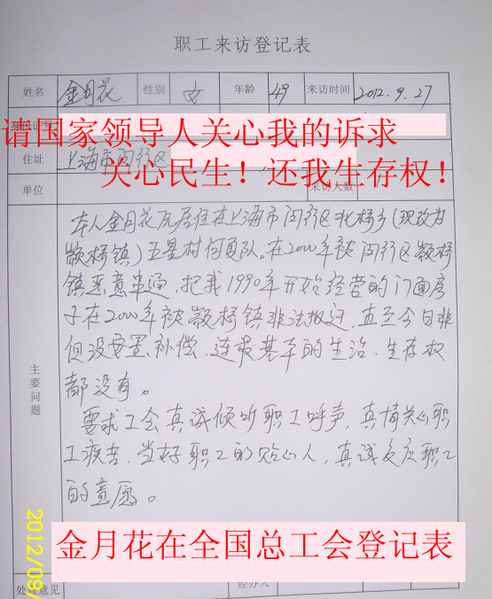 职工来访登记表
姓名 金月花 性别 女 年龄 49 来访时间 2012.9.27
请国家领导人关心我的诉求
住址 上海市闵行区
关心民生！还我生存权！
单位 来访人数
主要问题
本人金月花原居住在上海市闵行区北桥乡(现改为
颛桥镇)五星村何更队。在2000年被闵行区颛桥
镇恶意串通，把我1990年开始经营的门面房
子在2000年被颛桥镇非法拆迁，直至今日非
但没安置、补偿，连最基本的生活、生存权
都没有。
要求工会真诚倾听职工呼声，真情关心职
工疾苦，当好职工的贴心人，真诚反应职工
的意愿。
2012/09/
金月花在全国总工会登记表
处理意见 经办人